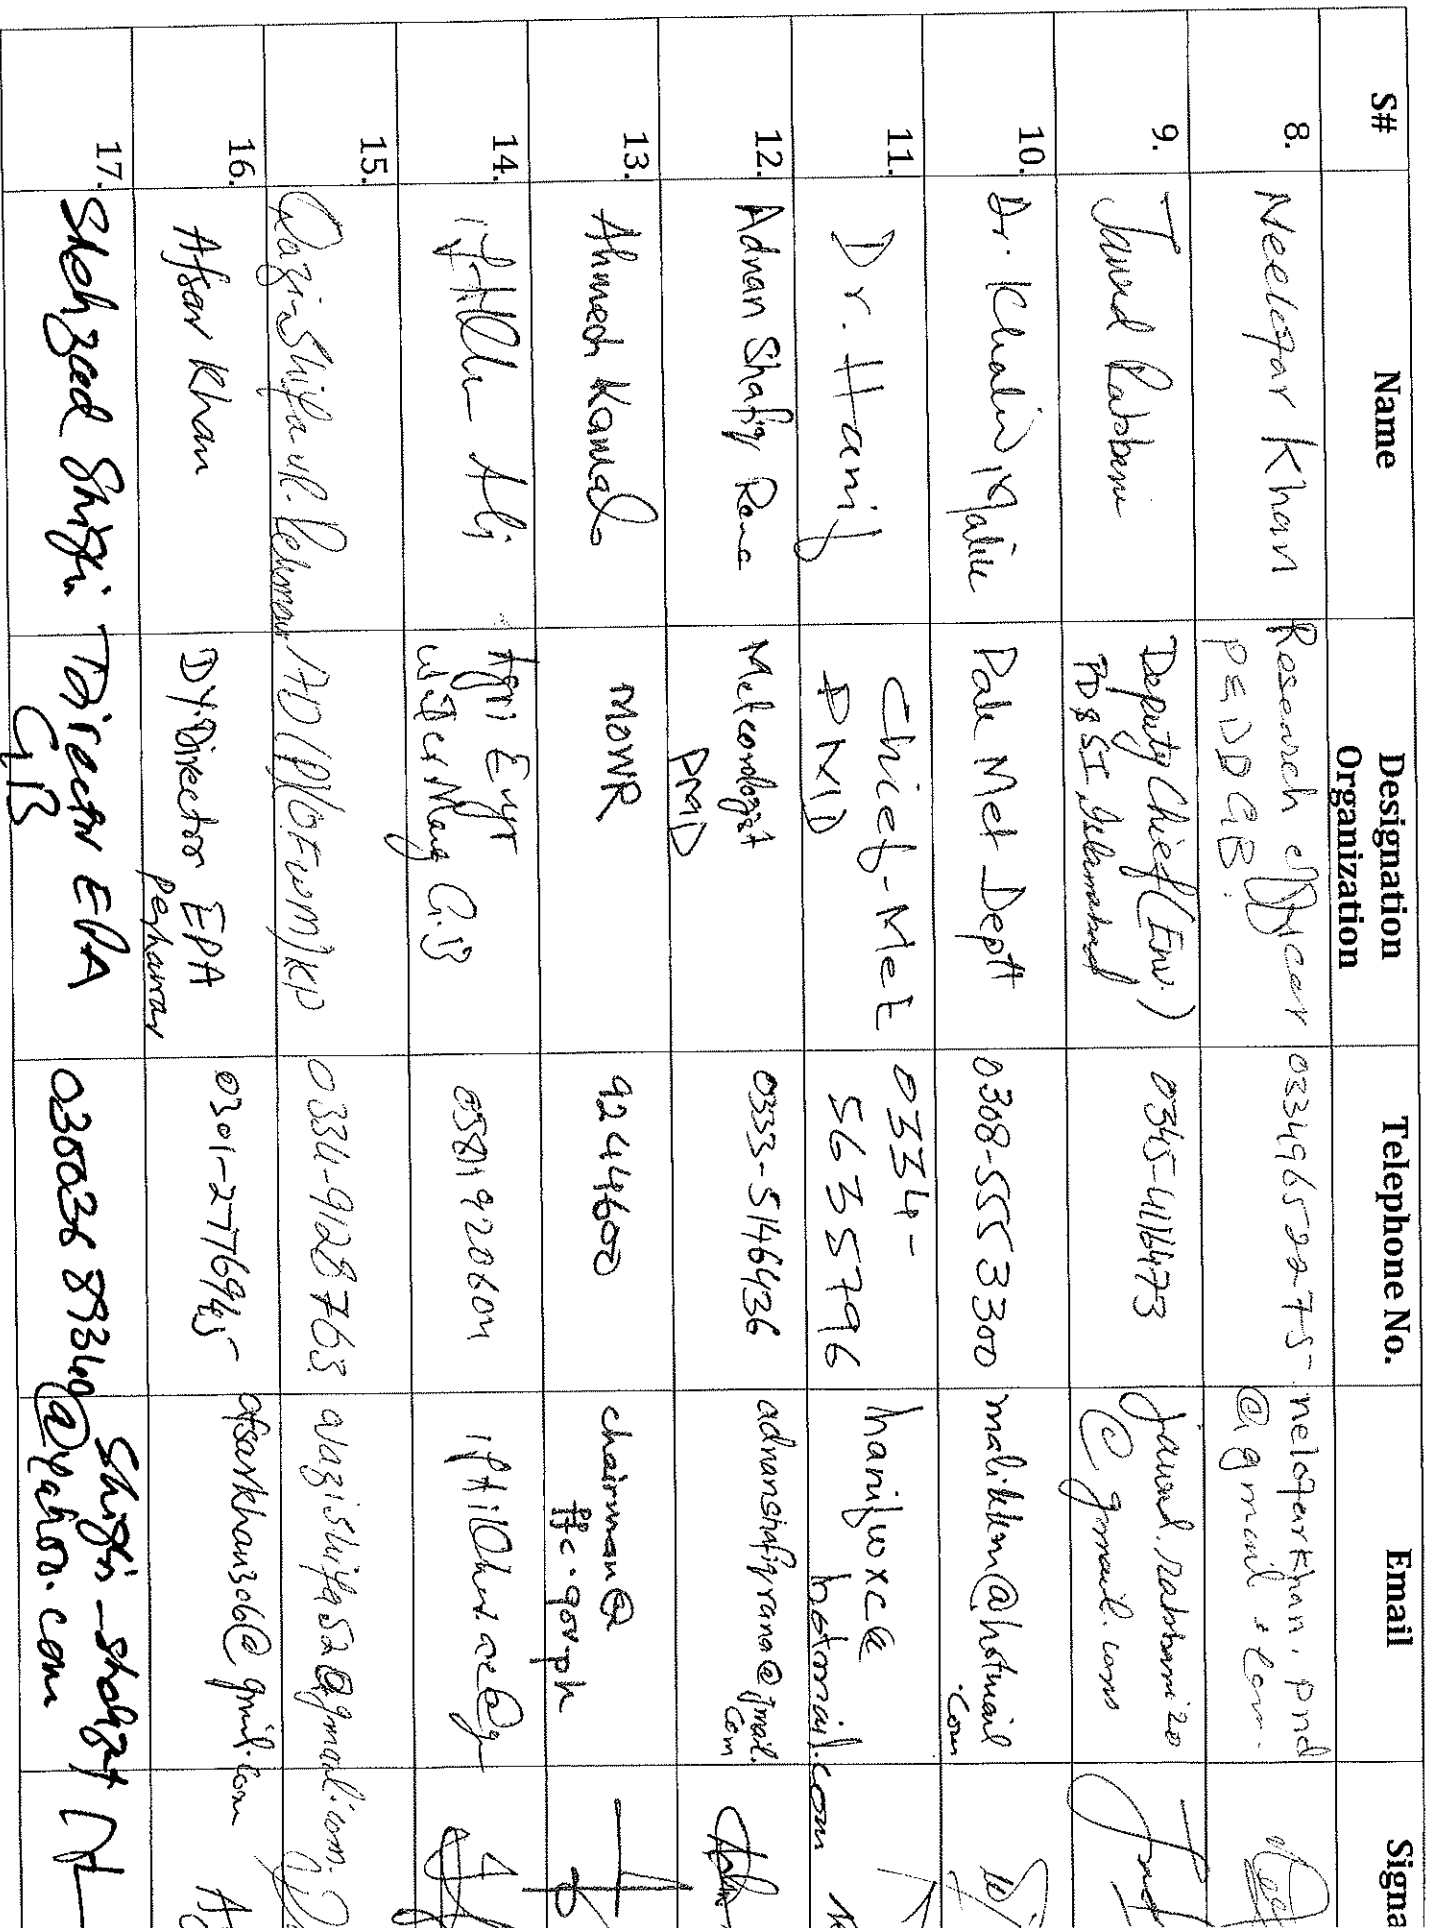 S# Name Designation Organization Telephone No. Email Signa
8. Neelofar Khan Research officer P&DD GB. 03349652275 nelofarkhan.pnd@gmail.com
9. Jawad Rabbani Deputy Chief (Env.) PD&SI, Islamabad 0345-4116473 jawad.rabbani20@gmail.com
10. Dr. Khalid Malik Pak Met Deptt 0308-5553300 malikkm@hotmail.com
11. Dr. Hanif Chief-Met PMD 0334-5635796 hanifwxc@hotmail.com
12. Adnan Shafiq Rana Meteorologist PMD 0333-5146436 adnanshafiqrana@gmail.com
13. Ahmed Kamal MOWR 9244600 chairman@ffc.gov.pk
14. Iftikhar Ali Agri Engr Water Mang G.B
15. AD(P)(OFWM) KP 0334-9128763 qazishifa52@gmail.com.
16. Afsar Khan DY.Director EPA Peshawar 0301-2776945 afsarkhan306@gmil.com
17. Shehzad Shigri Director EPA GB @yahoo.com